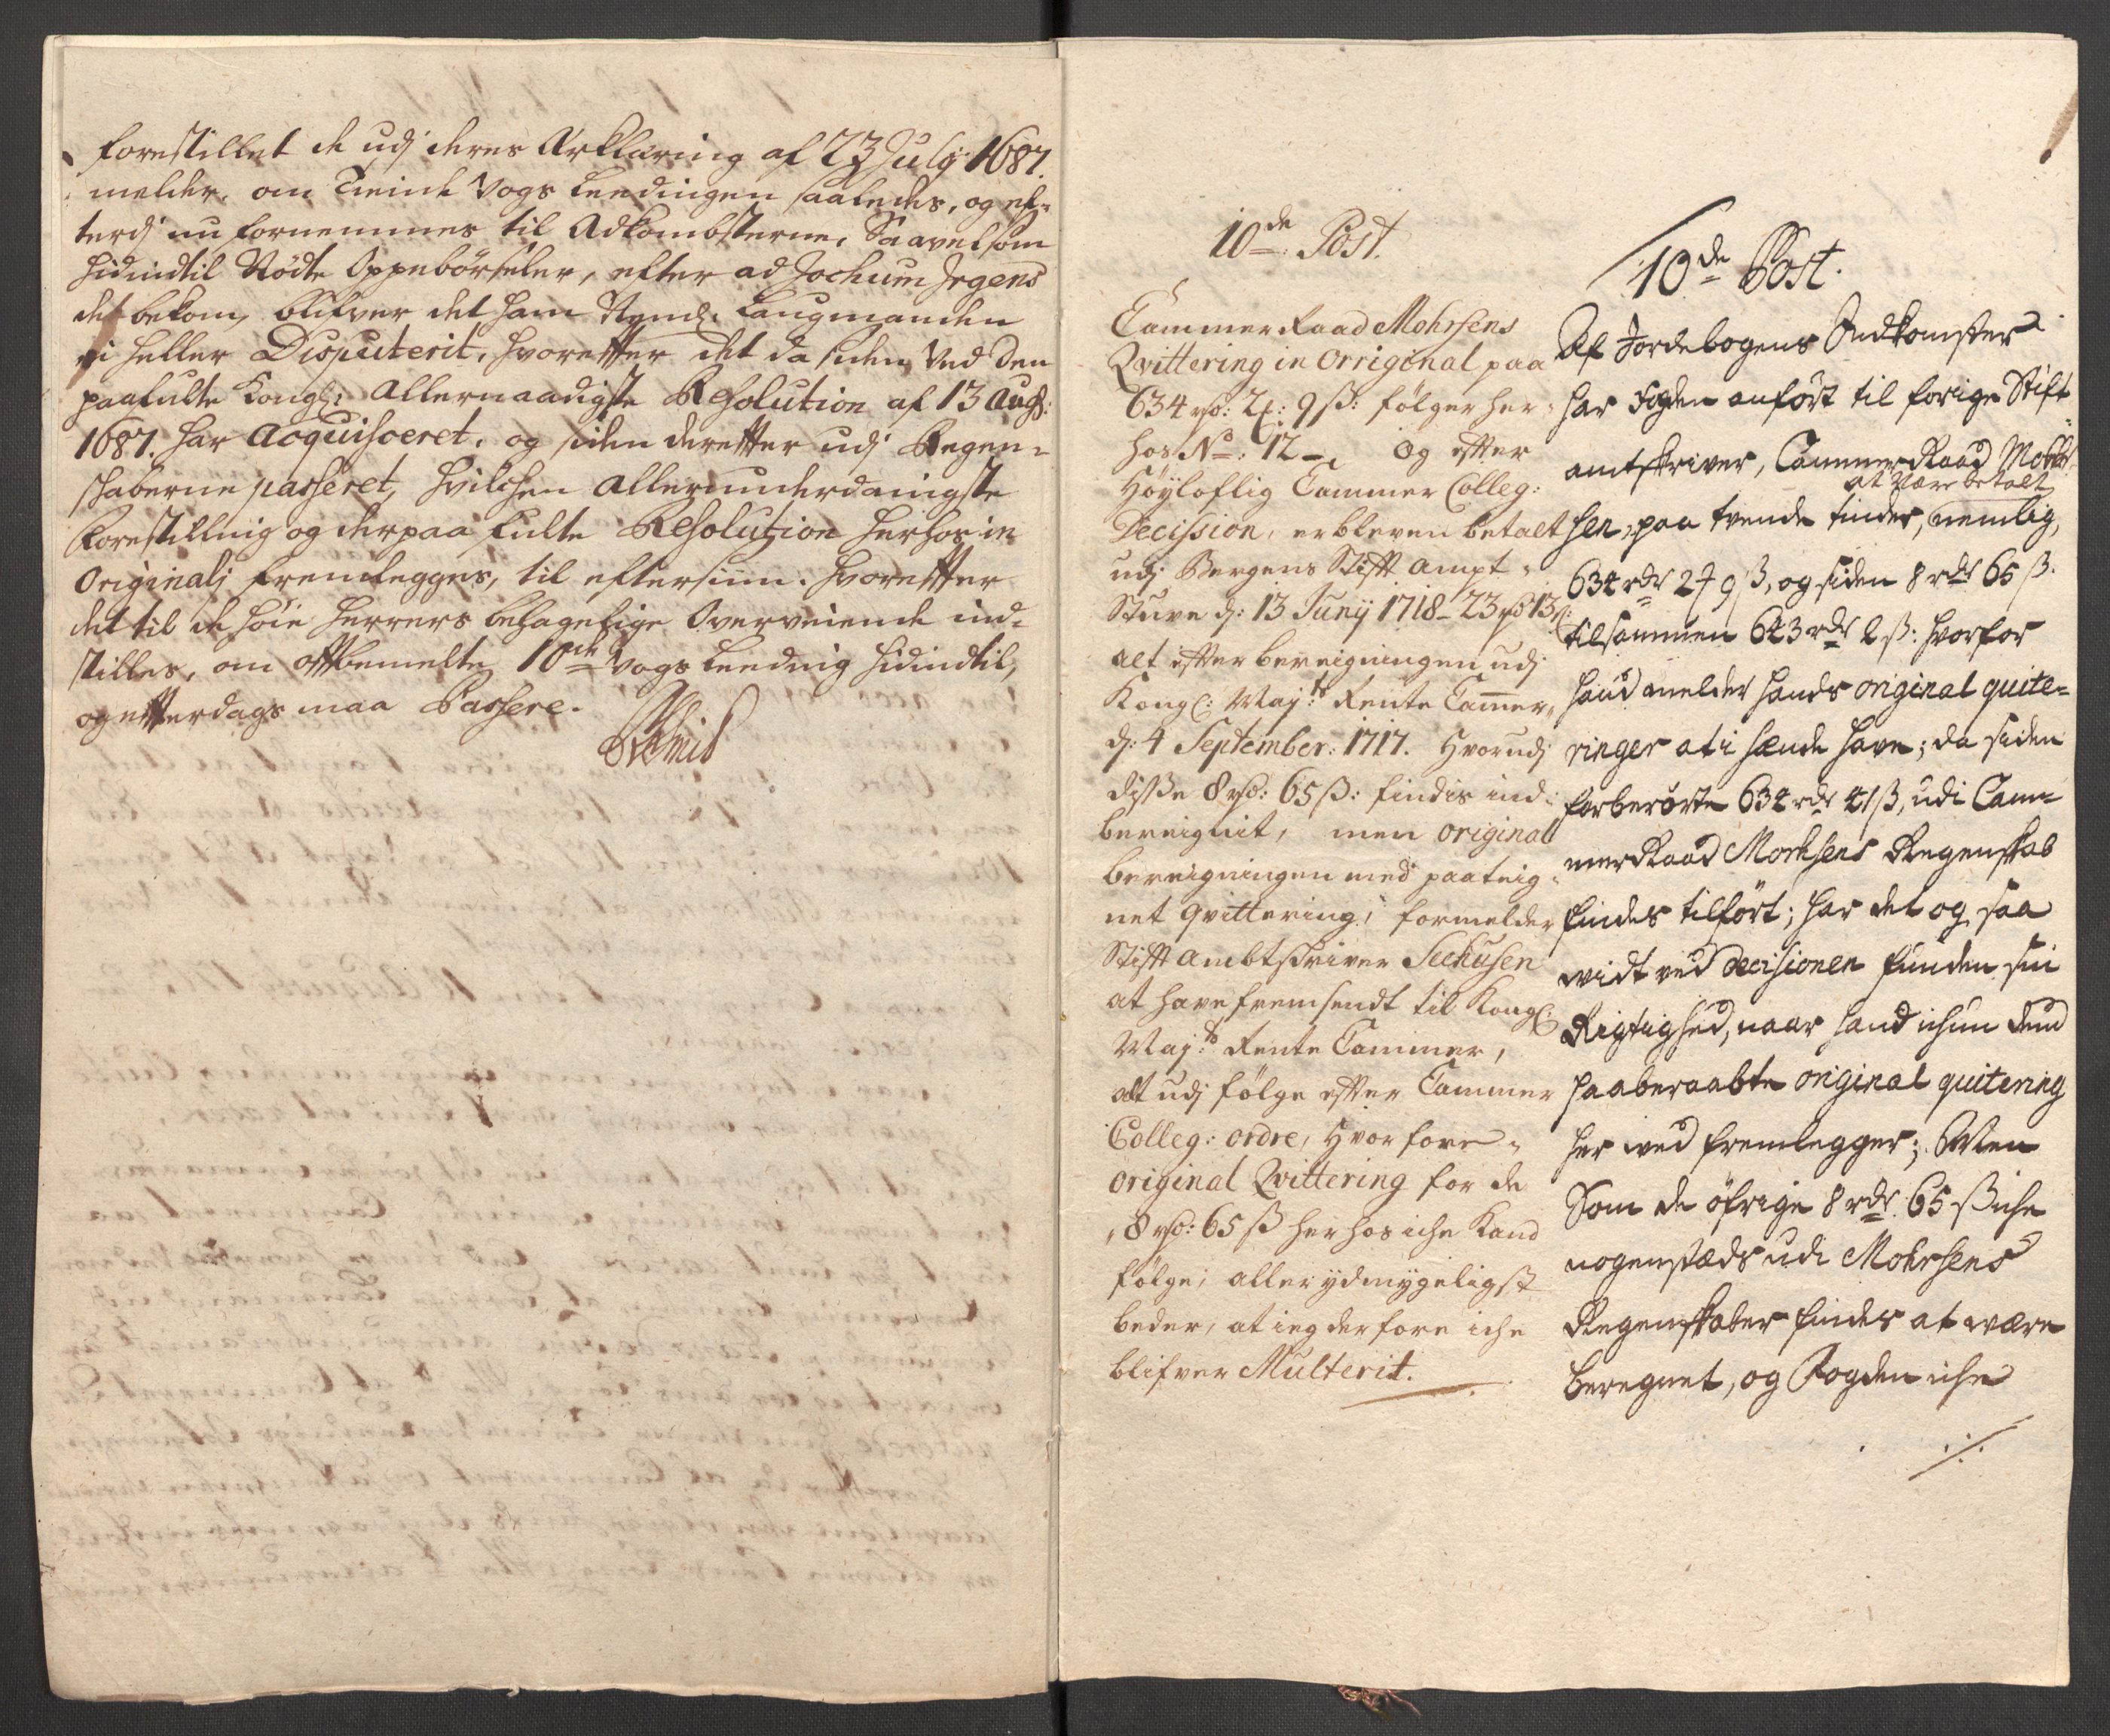 forestillet de udj deres Erklæring af 23 July 1687.
melder, om Tiende Vogs Leedingen saaledes, og ef-
terdj nu fornemmes til Adkombsterne, Saavelsom
hidindtil Nødte Oppebørseler, efter ad Jochum Jrgens
det bekom, blifver det ham Kongl: Laugmanden
ei heller Disputerit, hvorefter det da siden ved den
paafulte Kongl: Allernaadigste Resolution af 13 Aug:
1687. har Acquisceret, og siden derefter udj Regen-
schaberne passeret, hvilchen allerunderdanigste
Forestilning og derpaa fulte Resolution herhos in
Originalj fremlegges, til eftersiun. hvorefter
det til de høie Herrers behagelige Overveiende ind-
stilles, om oftbemelte 10de Vogs Leeding hidindtil,
og efterdags maa Passere.
10de Post.
Cammer Raad Mohrsens
Qvittering in Orriginal paa
634 rd: 2 ȝ: 9 ß: følger her-
hos No: 12 –, Og efter
Høyloflig Cammer Colleg:
Decission, er bleven betalt
udj Bergens Stift Ampt-
Stuve d: 13 Junij 1718 – 23 rd 13 ß:
alt efter bereigningen udj
Kongl: Maj:ts Rente Camer,
d: 4 September: 1717. Hvorudj
disse 8 rd: 65 ß: findis ind-
bereignit, men original
bereigningen med paateig-
net qvittering, formelder
Stift ambtskriver Seehusen
at have fremsendt til Kongl:
Maj:ts Rente Cammer,
alt udj følge efter Cammer
Colleg: ordre, Hvorfore
original Qvittering for de
8 rd: 65 ß her hos iche Kand
følge, aller ydmygeligst
beder, at ieg derfore iche
blifver Multerit.
10de Post.
Af Jordebogens Indkomster
har Fogden anført til forige Stift-
amtskriver, Cammer Raad Mohr-
at være betalt
sen, paa tvende tider, nemlig,
634 rdr 2 ȝ 9 ß, og siden 8 rdr 65 ß.
tilsammen 643 rdr 2 ß: hvorfor
hand melder hands original quite-
ringer at i hænde have; da siden
forberørte 634 rdr 41 ß, udi Cam-
merRaad Morhsens Regenskab
findes tilført; har det og saa
widt ved decisionen funden sin
Rigtighed, naar hand ichun dend
paaberaabte original quitering
her wed fremlegger; Men
Som de øfrige 8 rdr 65 ß iche
nogenstæds udi Mohrsens
Regenskaber findes at være
beregnet, og Fogden iche
./.